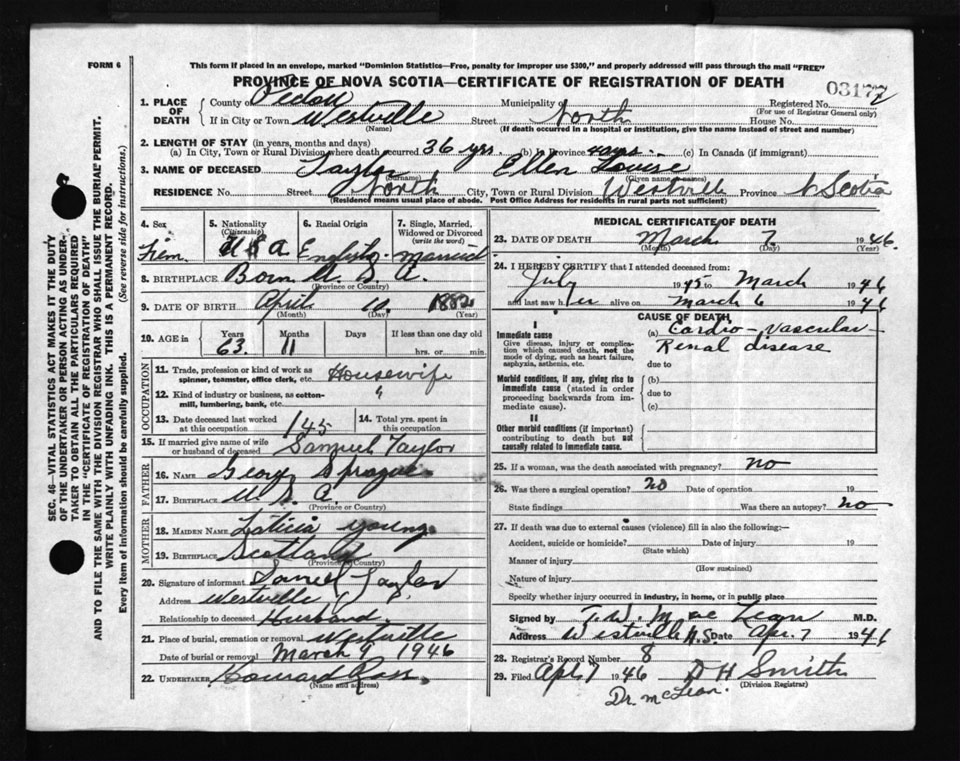 FORM 6
This form if placed in an envelope, marked "Dominion Statistics—Free, penalty for improper use $300," and properly addressed will pass through the mail "FREE"
PROVINCE OF NOVA SCOTIA—CERTIFICATE OF REGISTRATION OF DEATH
03177
1. PLACE OF DEATH { County of Pictou Municipality Registered No.
(For use of Registrar General only)
If in City or Town Westville Street North House No.
(Name) (If death occurred in a hospital or institution, give the name instead of street and number)
2. LENGTH OF STAY (in years, months and days)
(a) In City, Town or Rural Division where death occurred 36 yrs. (b) In Province (c) In Canada (if immigrant)
3. NAME OF DECEASED Taylor Ellen Louise
(Surname) (Given names)
RESIDENCE No. Street North City, Town or Rural Division Westville Province N Scotia
(Residence means usual place of abode. Post Office Address for residents in rural parts not sufficient)
4. Sex 5. Nationality 6. Racial Origin 7. Single, Married,
(Citizenship) Widowed or Divorced
(write the word)
Fem. U S A. English married
8. BIRTHPLACE Born U. S A.
(Province or Country)
9. DATE OF BIRTH April 10 1882
(Month) (Day) (Year)
10. AGE in Years Months Days If less than one day old
63 11 hrs. or min.
OCCUPATION
11. Trade, profession or kind of work as Housewife
spinner, teamster, office clerk, etc.
12. Kind of industry or business, as cotton- "
mill, lumbering, bank, etc.
13. Date deceased last worked 14. Total yrs. spent in
at this occupation 145 this occupation
15. If married give name of wife
or husband of deceased Samuel Taylor
FATHER
16. NAME Georg Sprague
17. BIRTHPLACE U S. A.
(Province or Country)
MOTHER
18. MAIDEN NAME Laticia young
19. BIRTHPLACE Scotland
(Province or Country)
20. Signature of informant Samuel Taylor
Address Westville
Relationship to deceased Husband
21. Place of burial, cremation or removal Westville
Date of burial or removal March 9 1946
22. UNDERTAKER Howard Ross
(Name and address)
MEDICAL CERTIFICATE OF DEATH
23. DATE OF DEATH March 7 1946.
(Month) (Day) (Year)
24. I HEREBY CERTIFY that I attended deceased from:
July 1945 to March 1946
and last saw her alive on March 6 1946
CAUSE OF DEATH
I
Immediate cause (a) Cardio-Vascular-
Give disease, injury or complica- Renal disease
tion which caused death, not the
mode of dying, such as heart failure, due to
asphyxia, asthenia, etc.
Morbid conditions, if any, giving rise to (b)
immediate cause (stated in order due to
proceeding backwards from im-
mediate cause). (c)
II
Other morbid conditions (if important)
contributing to death but not
causally related to immediate cause.
25. If a woman, was the death associated with pregnancy? no
26. Was there a surgical operation? no Date of operation 19
State findings Was there an autopsy? no
27. If death was due to external causes (violence) fill in also the following:—
Accident, suicide or homicide? Date of injury 19
(State which)
Manner of injury
(How sustained)
Nature of injury
Specify whether injury occurred in industry, in home, or in public place
Signed by T. W. MacLean M.D.
Address Westville N.S. Date Apr. 7 1946
28. Registrar's Record Number 8
29. Filed Apl 7 1946 D H Smith
(Division Registrar)
Dr. McLean.
SEC. 46—VITAL STATISTICS ACT MAKES IT THE DUTY
OF THE UNDERTAKER OR PERSON ACTING AS UNDER-
TAKER TO OBTAIN ALL THE PARTICULARS REQUIRED
IN THE "CERTIFICATE OF REGISTRATION OF DEATH"
AND TO FILE THE SAME WITH THE DIVISION REGISTRAR WHO SHALL ISSUE THE BURIAL PERMIT.
WRITE PLAINLY WITH UNFADING INK. THIS IS A PERMANENT RECORD.
Every item of information should be carefully supplied. (See reverse side for instructions.)